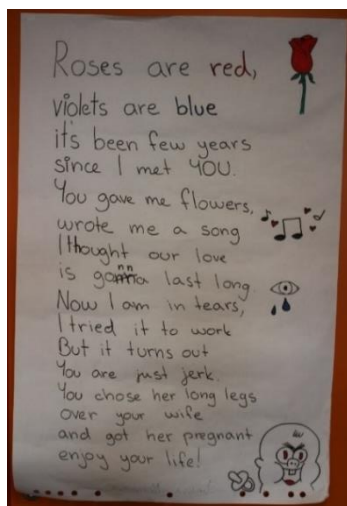 Roses are red,
violets are blue
it's been few years
since I met YOU.
You gave me flowers,
wrote me a song
I thought our love
is gonna last long
Now I am in tears,
I tried it to work
But it turns out
You are just jerk.
You chose her long legs
over your wife
and got her pregnant
enjoy your life!